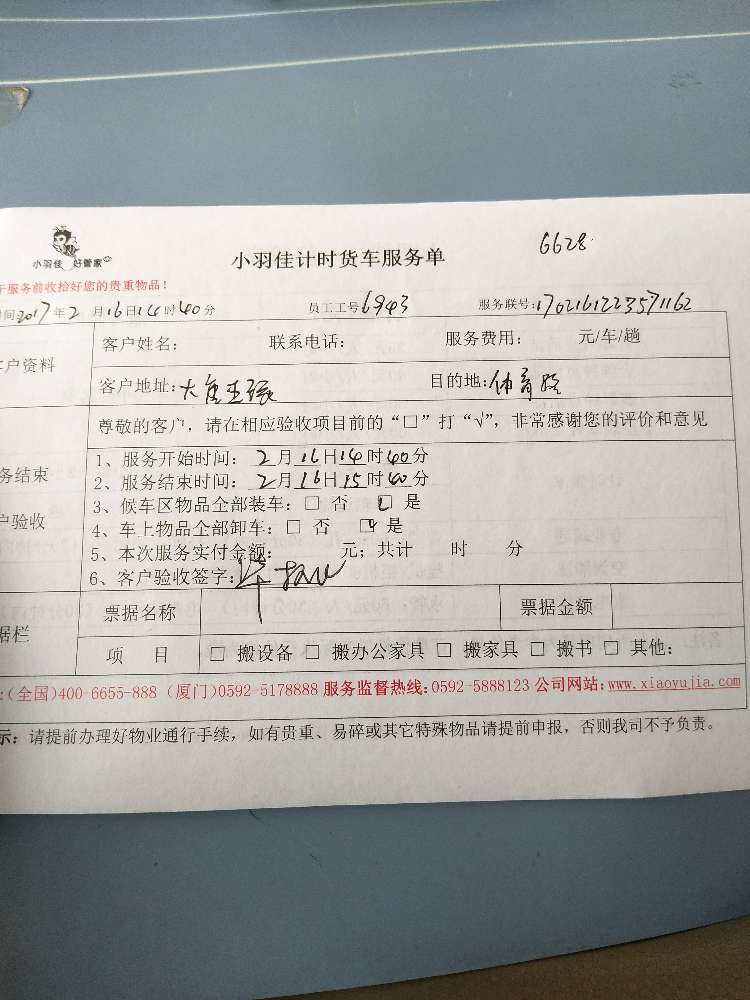 小羽佳 好管家
小羽佳计时货车服务单
6628
于服务前收拾好您的贵重物品!
时间:2017年2月16日14时40分 员工工号6943 服务联号:1702161223571162
客户资料
客户姓名: 联系电话: 服务费用: 元/车/趟
客户地址:大唐 目的地:体育路
尊敬的客户,请在相应验收项目前的“□”打“√”,非常感谢您的评价和意见
务结束
户验收
1、服务开始时间: 2月16日14时40分
2、服务结束时间: 2月16日15时40分
3、候车区物品全部装车:□ 否 □ 是
4、车上物品全部卸车:□ 否 ☑ 是
5、本次服务实付金额: 元;共计 时 分
6、客户验收签字:
据栏
票据名称 票据金额
项 目 □ 搬设备 □ 搬办公家具 □ 搬家具 □ 搬书 □ 其他:
:(全国)400-6655-888 (厦门)0592-5178888 服务监督热线:0592-5888123 公司网站:www.xiaoyujia.com
示:请提前办理好物业通行手续,如有贵重、易碎或其它特殊物品请提前申报,否则我司不予负责。